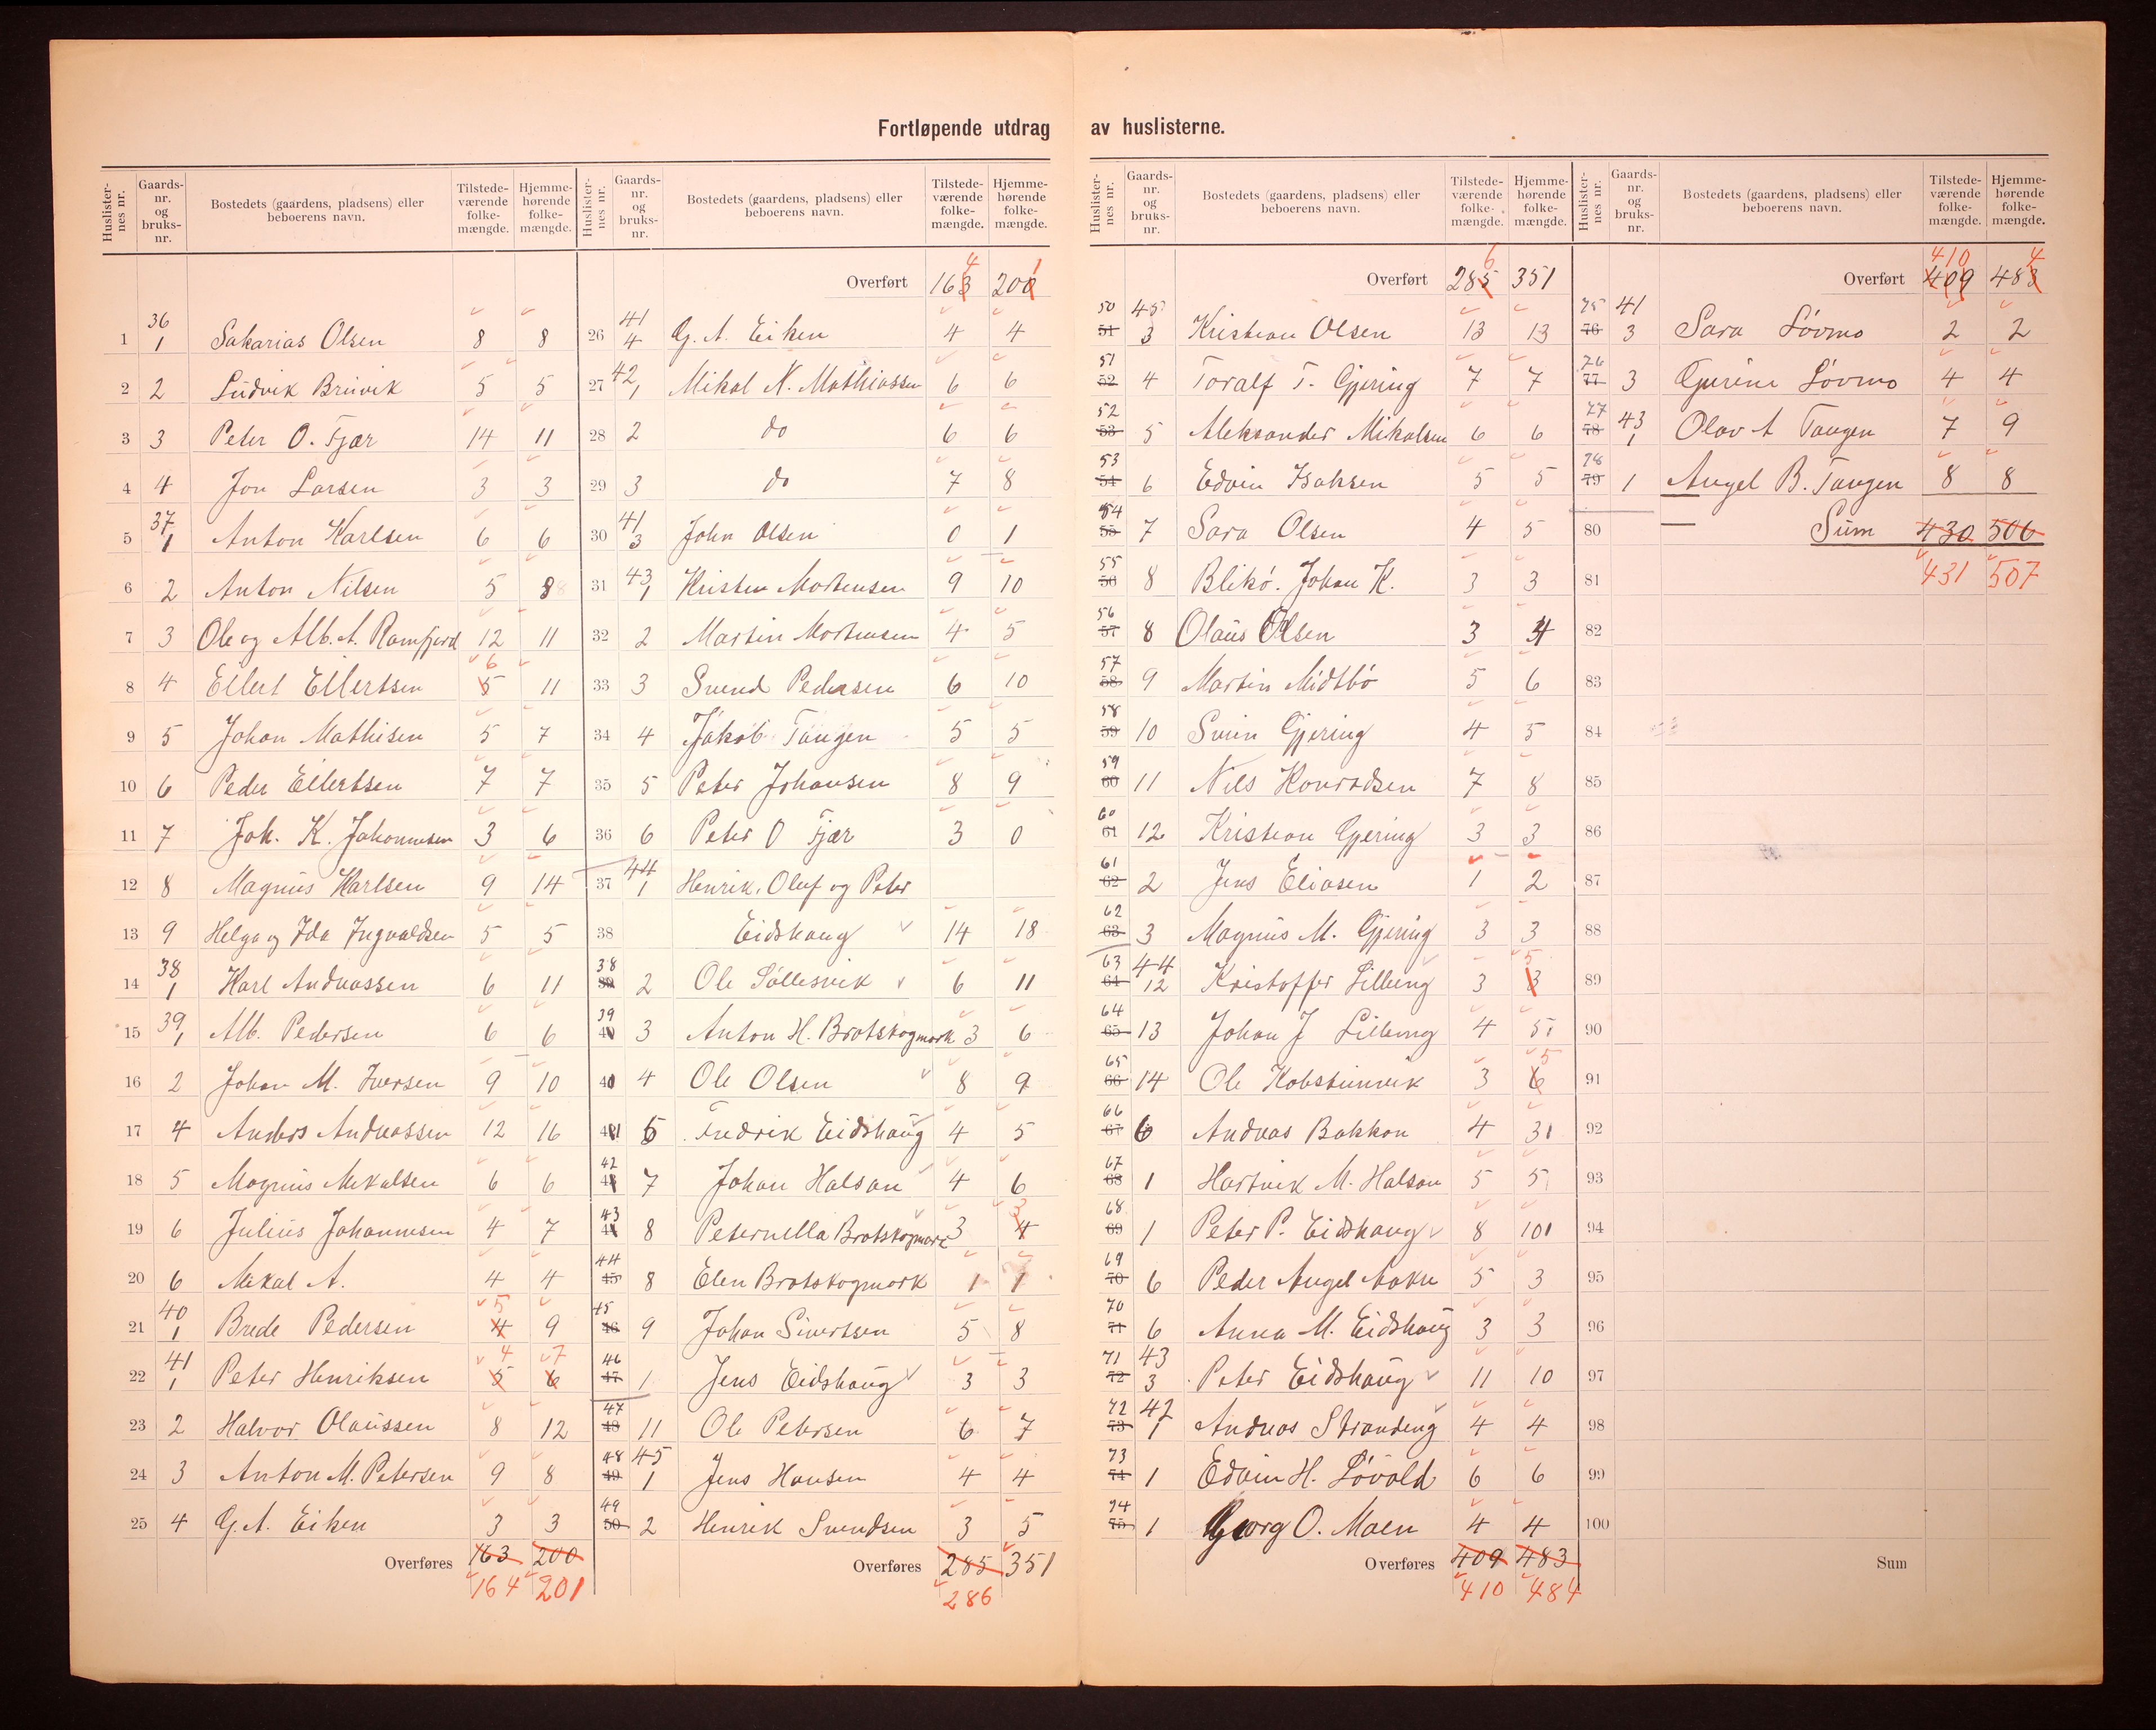 Fortløpende utdrag av huslisterne.
Huslister-nes nr. Gaards-nr. og bruks-nr. Bostedets (gaardens, pladsens) eller beboerens navn. Tilstede-værende folke-mængde. Hjemme-hørende folke-mængde.
1 36/1 Sakarias Olsen 8 8
2 2 Ludvik Bruvik 5 5
3 3 Peter O. Tjær 14 11
4 4 Jon Larsen 3 3
5 37/1 Anton Karlsen 6 6
6 2 Anton Nilsen 5 8
7 3 Ole og Alb. A. Ramfjord 12 11
8 4 Ellert Ellertsen 5 6 11
9 5 Johan Mathisen 5 7
10 6 Peder Ellertsen 7 7
11 7 Joh. K. Johannesen 3 6
12 8 Magnus Karlsen 9 14
13 9 Helga og Ida Ingvaldsen 5 5
14 38/1 Karl Andreassen 6 11
15 39/1 Alb. Pedersen 6 6
16 2 Johan M. Iversen 9 10
17 4 Anders Andreassen 12 16
18 5 Magnus Mikalsen 6 6
19 6 Julius Johannesen 4 7
20 6 Mikal A. 4 4
21 40/1 Brede Pedersen 4 5 9
22 41/1 Peter Henriksen 5 4 6 7
23 2 Halvor Olaussen 8 12
24 3 Anton M. Petersen 9 8
25 4 G. A. Eiken 3 3
Overføres 163 200
164 201
Huslister-nes nr. Gaards-nr. og bruks-nr. Bostedets (gaardens, pladsens) eller beboerens navn. Tilstede-værende folke-mængde. Hjemme-hørende folke-mængde.
Overført 163 4 200 1
26 41/4 G. A. Eiken 4 4
27 42/1 Mikal N. Mathiassen 6 6
28 2 do 6 6
29 3 do 7 8
30 41/3 John Olsen 0 1
31 43/1 Kristen Mortensen 9 10
32 2 Martin Mortensen 4 5
33 3 Svend Pedersen 6 10
34 4 Jakob Tangen 5 5
35 5 Peter Johansen 8 9
36 6 Peter O Tjær 3 0
37 44/1 Henrik, Oluf og Peter
38 Eidshaug 14 18
38 39 2 Ole Sollesvik 6 11
39 3 Anton H. Brotskogmark 3 6
40 4 Ole Olsen 8 9
41 5 Fredrik Eidshaug 4 5
42 7 Johan Halsan 4 6
43 8 Peternella Brotskogmark 3 4 3
44 45 8 Elen Brotskogmark 1 1
45 46 9 Johan Sivertsen 5 8
46 47 1 Jens Eidshaug 3 3
47 48 11 Ole Petersen 6 7
48 49 45/1 Jens Hansen 4 4
49 50 2 Henrik Svendsen 3 5
Overføres 285 351
286
Huslister-nes nr. Gaards-nr. og bruks-nr. Bostedets (gaardens, pladsens) eller beboerens navn. Tilstede-værende folke-mængde. Hjemme-hørende folke-mængde.
Overført 285 6 351
50 51 45/3 Kristian Olsen 13 13
51 52 4 Toralf T. Gjering 7 7
52 53 5 Aleksander Mikalsen 6 6
53 54 6 Edvin Isaksen 5 5
54 55 7 Sara Olsen 4 5
55 56 8 Blikø. Johan K. 3 3
56 57 8 Olaus Olsen 3 4
57 58 9 Martin Midtbø 5 6
58 59 10 Svein Gjering 4 5
59 60 11 Nils Konradsen 7 8
60 61 12 Kristian Gjering 3 3
61 62 2 Jens Eliasen 1 2
62 63 3 Magnus M. Gjering 3 3
63 64 44/12 Kristoffer Lilleeng 3 3 5
64 65 13 Johan J Lilleeng 4 5
65 66 14 Ole Kobsteinvik 3 6 5
66 67 6 Andreas Bakkan 4 3
67 68 1 Hartvik M. Halsan 5 5
68 69 1 Peter P. Eidshaug 8 10
69 70 6 Peder Angel Aakre 5 3
70 71 6 Anna M. Eidshaug 3 3
71 72 43/3 Peter Eidshaug 11 10
72 73 42/1 Andreas Strandeng 4 4
73 74 1 Edvin H. Løvold 6 6
74 75 1 Georg O. Moen 4 4
Overføres 409 483
410 484
Huslister-nes nr. Gaards-nr. og bruks-nr. Bostedets (gaardens, pladsens) eller beboerens navn. Tilstede-værende folke-mængde. Hjemme-hørende folke-mængde.
Overført 409 410 483 4
75 76 41/3 Sara Løvmo 2 2
76 77 3 Gurine Løvmo 4 4
77 78 43/1 Olav A Tangen 7 9
78 79 1 Angel B. Tangen 8 8
80 Sum 430 506
81 431 507
82
83
84
85
86
87
88
89
90
91
92
93
94
95
96
97
98
99
100
Sum